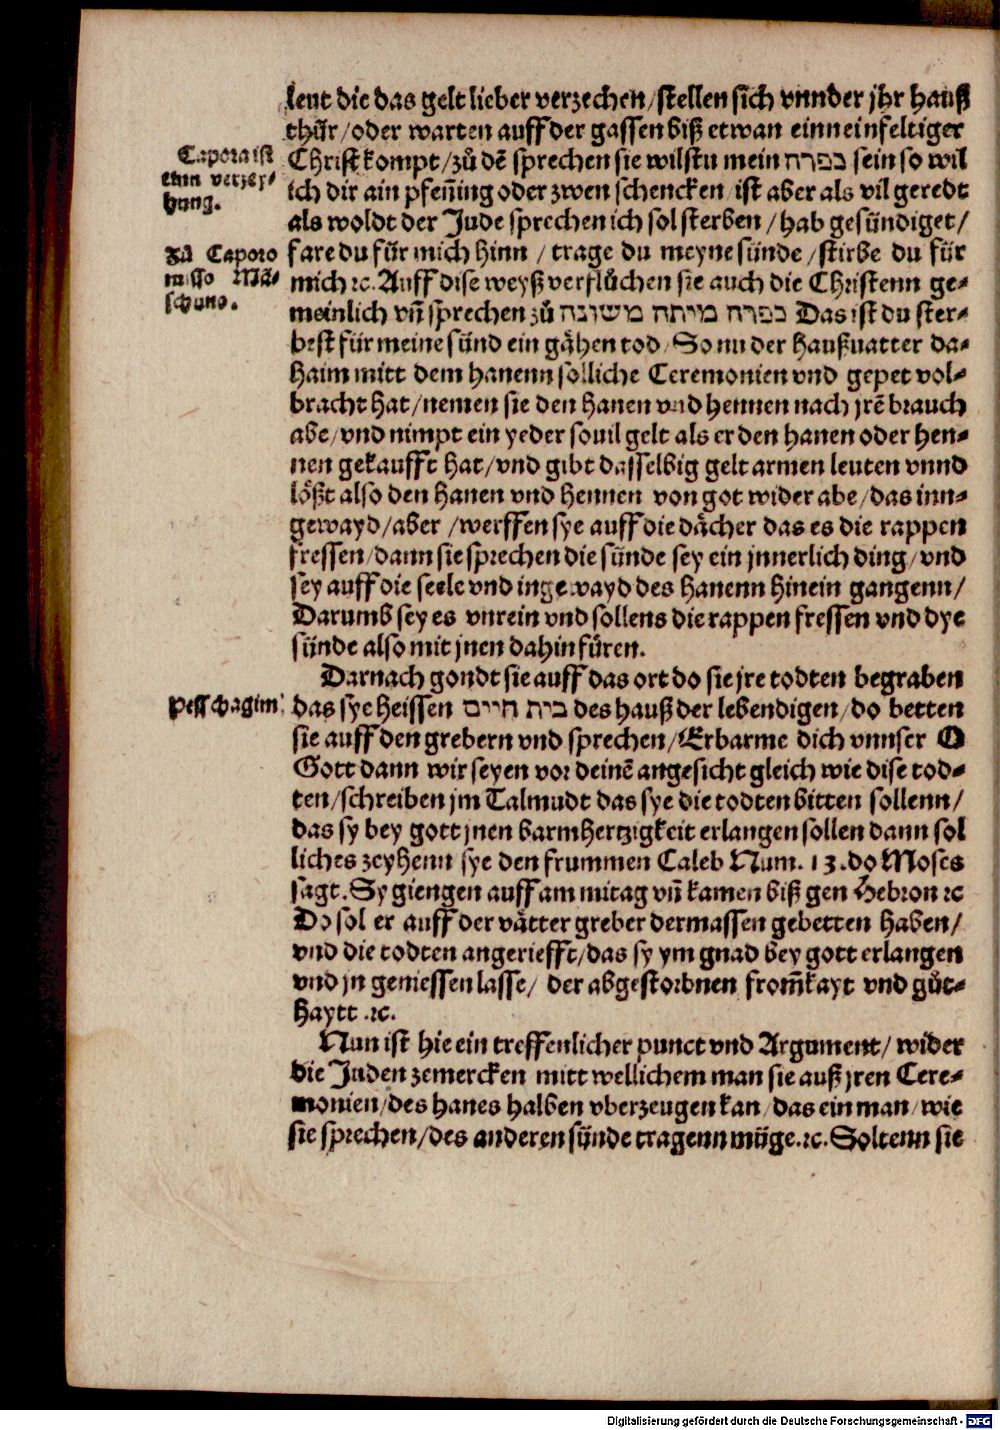 leut die das gelt lieber verzechen/stellen sich vnnder jhr hauß
thür/oder warten auff der gassen biß etwan ein neinfeltiger
Capora ist
ein verzey-
hung.
Christ kompt/zů dē sprechen sie wilstu mein כפרה sein so wil
ich dir ain pfeñing oder zwen schencken/ist aber als vil geredt
als woldt der Jude sprechen ich sol sterben/hab gesündiget/
Zů Caporo
misso Mä-
schuno.
fare du für mich hinn/trage du meyne sünde/stirbe du für
mich ꝛc. Auff dise weyß verflůchen sie auch die Christenn ge-
meinlich vñ sprechen zů כפרה מיתה משונה Das ist du ster-
best für meine sünd ein gåhen tod/So nu der haußuatter da-
haim mitt dem hanenn solliche Ceremonien vnd gepet vol-
bracht hat/nemen sie den hanen vnd hennen nach jrē brauch
abe/vnd nimpt ein yeder souil gelt als er den hanen oder hen-
nen gekaufft hat/vnd gibt dasselbig gelt armen leuten vnnd
lößt also den hanen vnd hennen von got wider abe/das inn-
gewayd/aber/werffen sye auff die dächer das es die rappen
fressen/dann sie sprechen die sünde sey ein jnnerlich ding/vnd
sey auff die seele vnd ingewayd des hanenn hinein gangenn/
Darumb sey es vnrein vnd sollens die rappen fressen vnd dye
sünde also mit jnen dahin füren.
Darnach gondt sie auff das ort do sie jre todten begraben
Peßchagim
das sye heissen בית חיים des hauß der lebendigen/do betten
sie auff den grebern vnd sprechen/Erbarme dich vnnser O
Gott dann wir seyen vor deinē angesicht gleich wie dise tod-
ten/schreiben jm Talmudt das sye die todten bitten sollenn/
das sy bey gott jnen barmhertzigkeit erlangen sollen dann sol
liches zeyhenn sye den frummen Caleb Num. 13. do Moses
sagt. Sy giengen auff am mitag vñ kamen biß gen Hebron ꝛc
Do sol er auff der vätter greber dermassen gebetten haben/
vnd die todten angerüefft/das sy ym gnad bey gott erlangen
vnd jn geniessen lasse/der abgestorbnen from̃kayt vnd gůt-
haytt .ꝛc.
Nun ist hie ein treffenlicher punct vnd Argument/wider
die Juden zemercken mitt wellichem man sie auß jren Cere-
monien/des hanes halben vberzeugen kan/das ein man/wie
sie sprechen/des anderen sünde tragenn müge.ꝛc. Soltenn sie
Digitalisierung gefördert durch die Deutsche Forschungsgemeinschaft - DFG